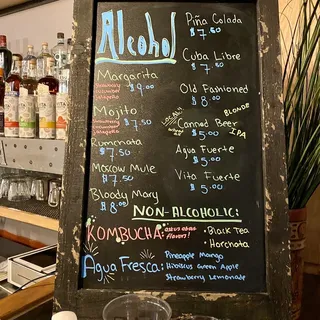 Alcohol
Margarita
$9.00
Mojito
$7.50
Rumchata
$7.50
Moscow Mule
$7.50
Bloody Mary
$8.00
Piña Colada
$7.50
Cuba Libre
$7.50
Old Fashioned
$8.00
BLONDE
Canned Beer
IPA
$5.00
Agua Fuerte
$5.00
Vita Fuerte
$5.00
NON-ALCOHOLIC:
KOMBUCHA: flavors!
• Black Tea
• Horchata
Agua Fresca: Pineapple Mango
Hibiscus Green Apple
Strawberry Lemonade